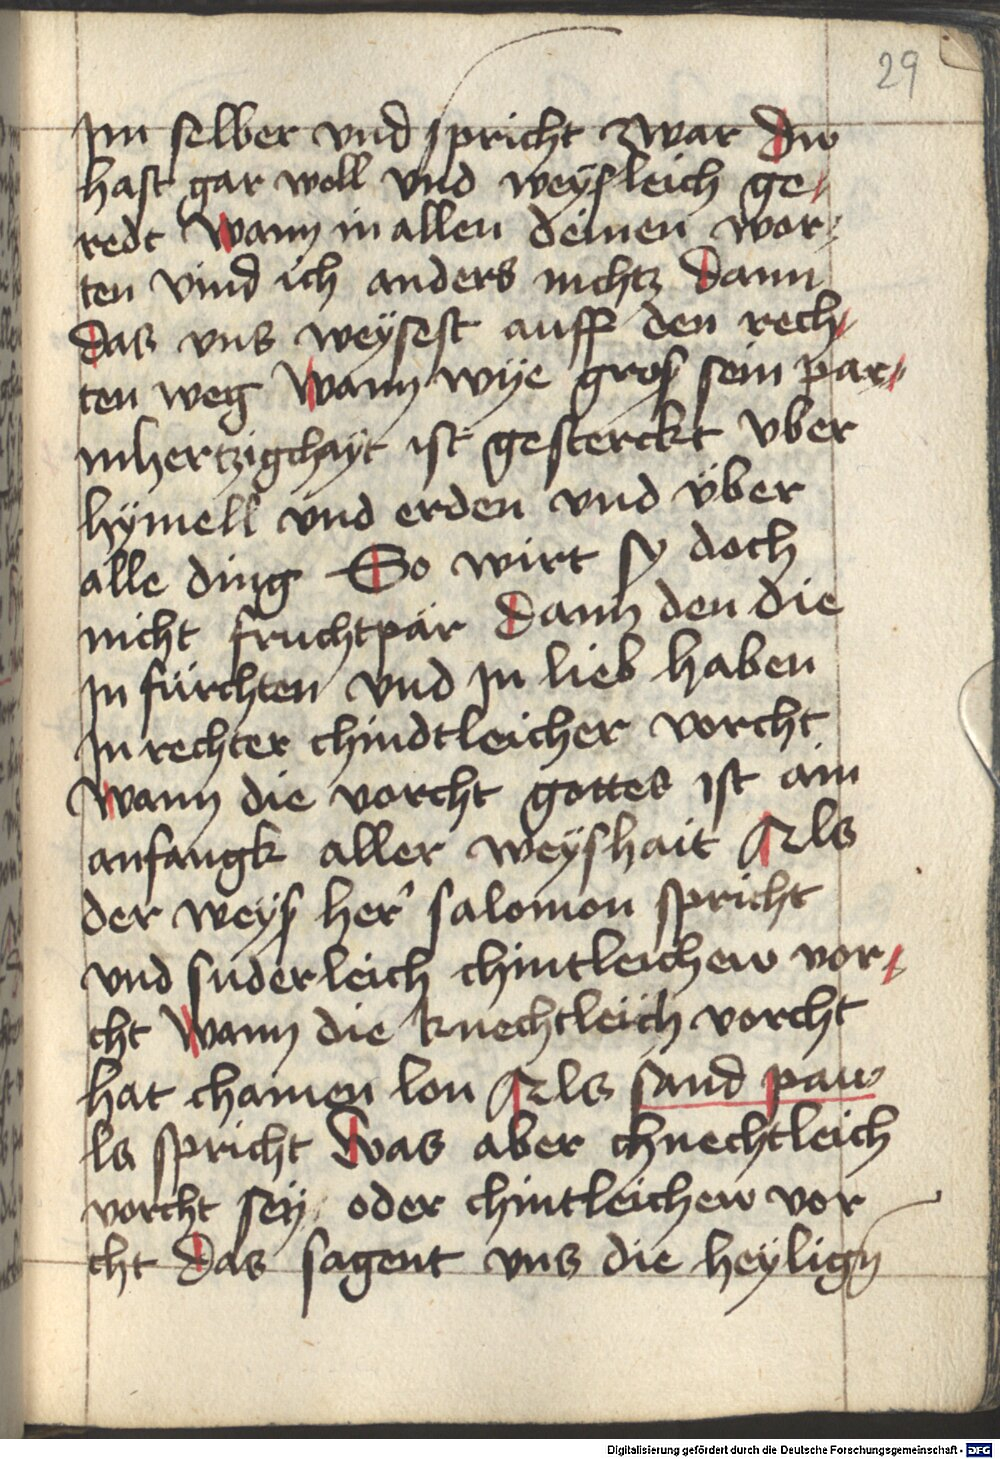 29
Im selber vnd spricht zwar Du
hast gar woll vnd weyſleich ge/
redt Wann in allen deinen wor/
ten vind ich anders nichtz Dann
Das vns weÿsest auff den rech/
ten weg Wann wÿe groſ sein par/
mhertzigchaÿt ist gesterckt vber
hÿmell vnd erden vnd vͤber
alle ding So wirt sy doch
nicht fruchtpär Dann den die
In fürchten vnd In lieb haben
In rechter chindtleicher vorcht
Wann die vorcht gottes ist ain
anfangk aller weÿshait Als
der weÿſ her salomon spricht
vnd suderleich chintleichew vor/
cht Wann die knechtleich vorcht
hat chainen lon Als sand paw
ls spricht Was aber chnechtleich
vorcht seÿ oder chintleichew vor
cht Das sagent vns die heÿlign
Digitalisierung gefördert durch die Deutsche Forschungsgemeinschaft - DFG